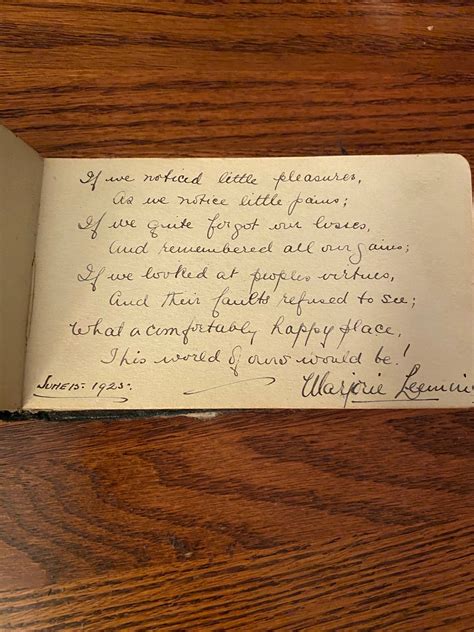 If we noticed little pleasures,
As we notice little pains;
If we quite forgot our losses,
And remembered all our gains;
If we looked at peoples virtues,
And their faults refused to see;
What a comfortably happy place,
This world of ours would be!
JUNE 15 - 1923.
Marjorie